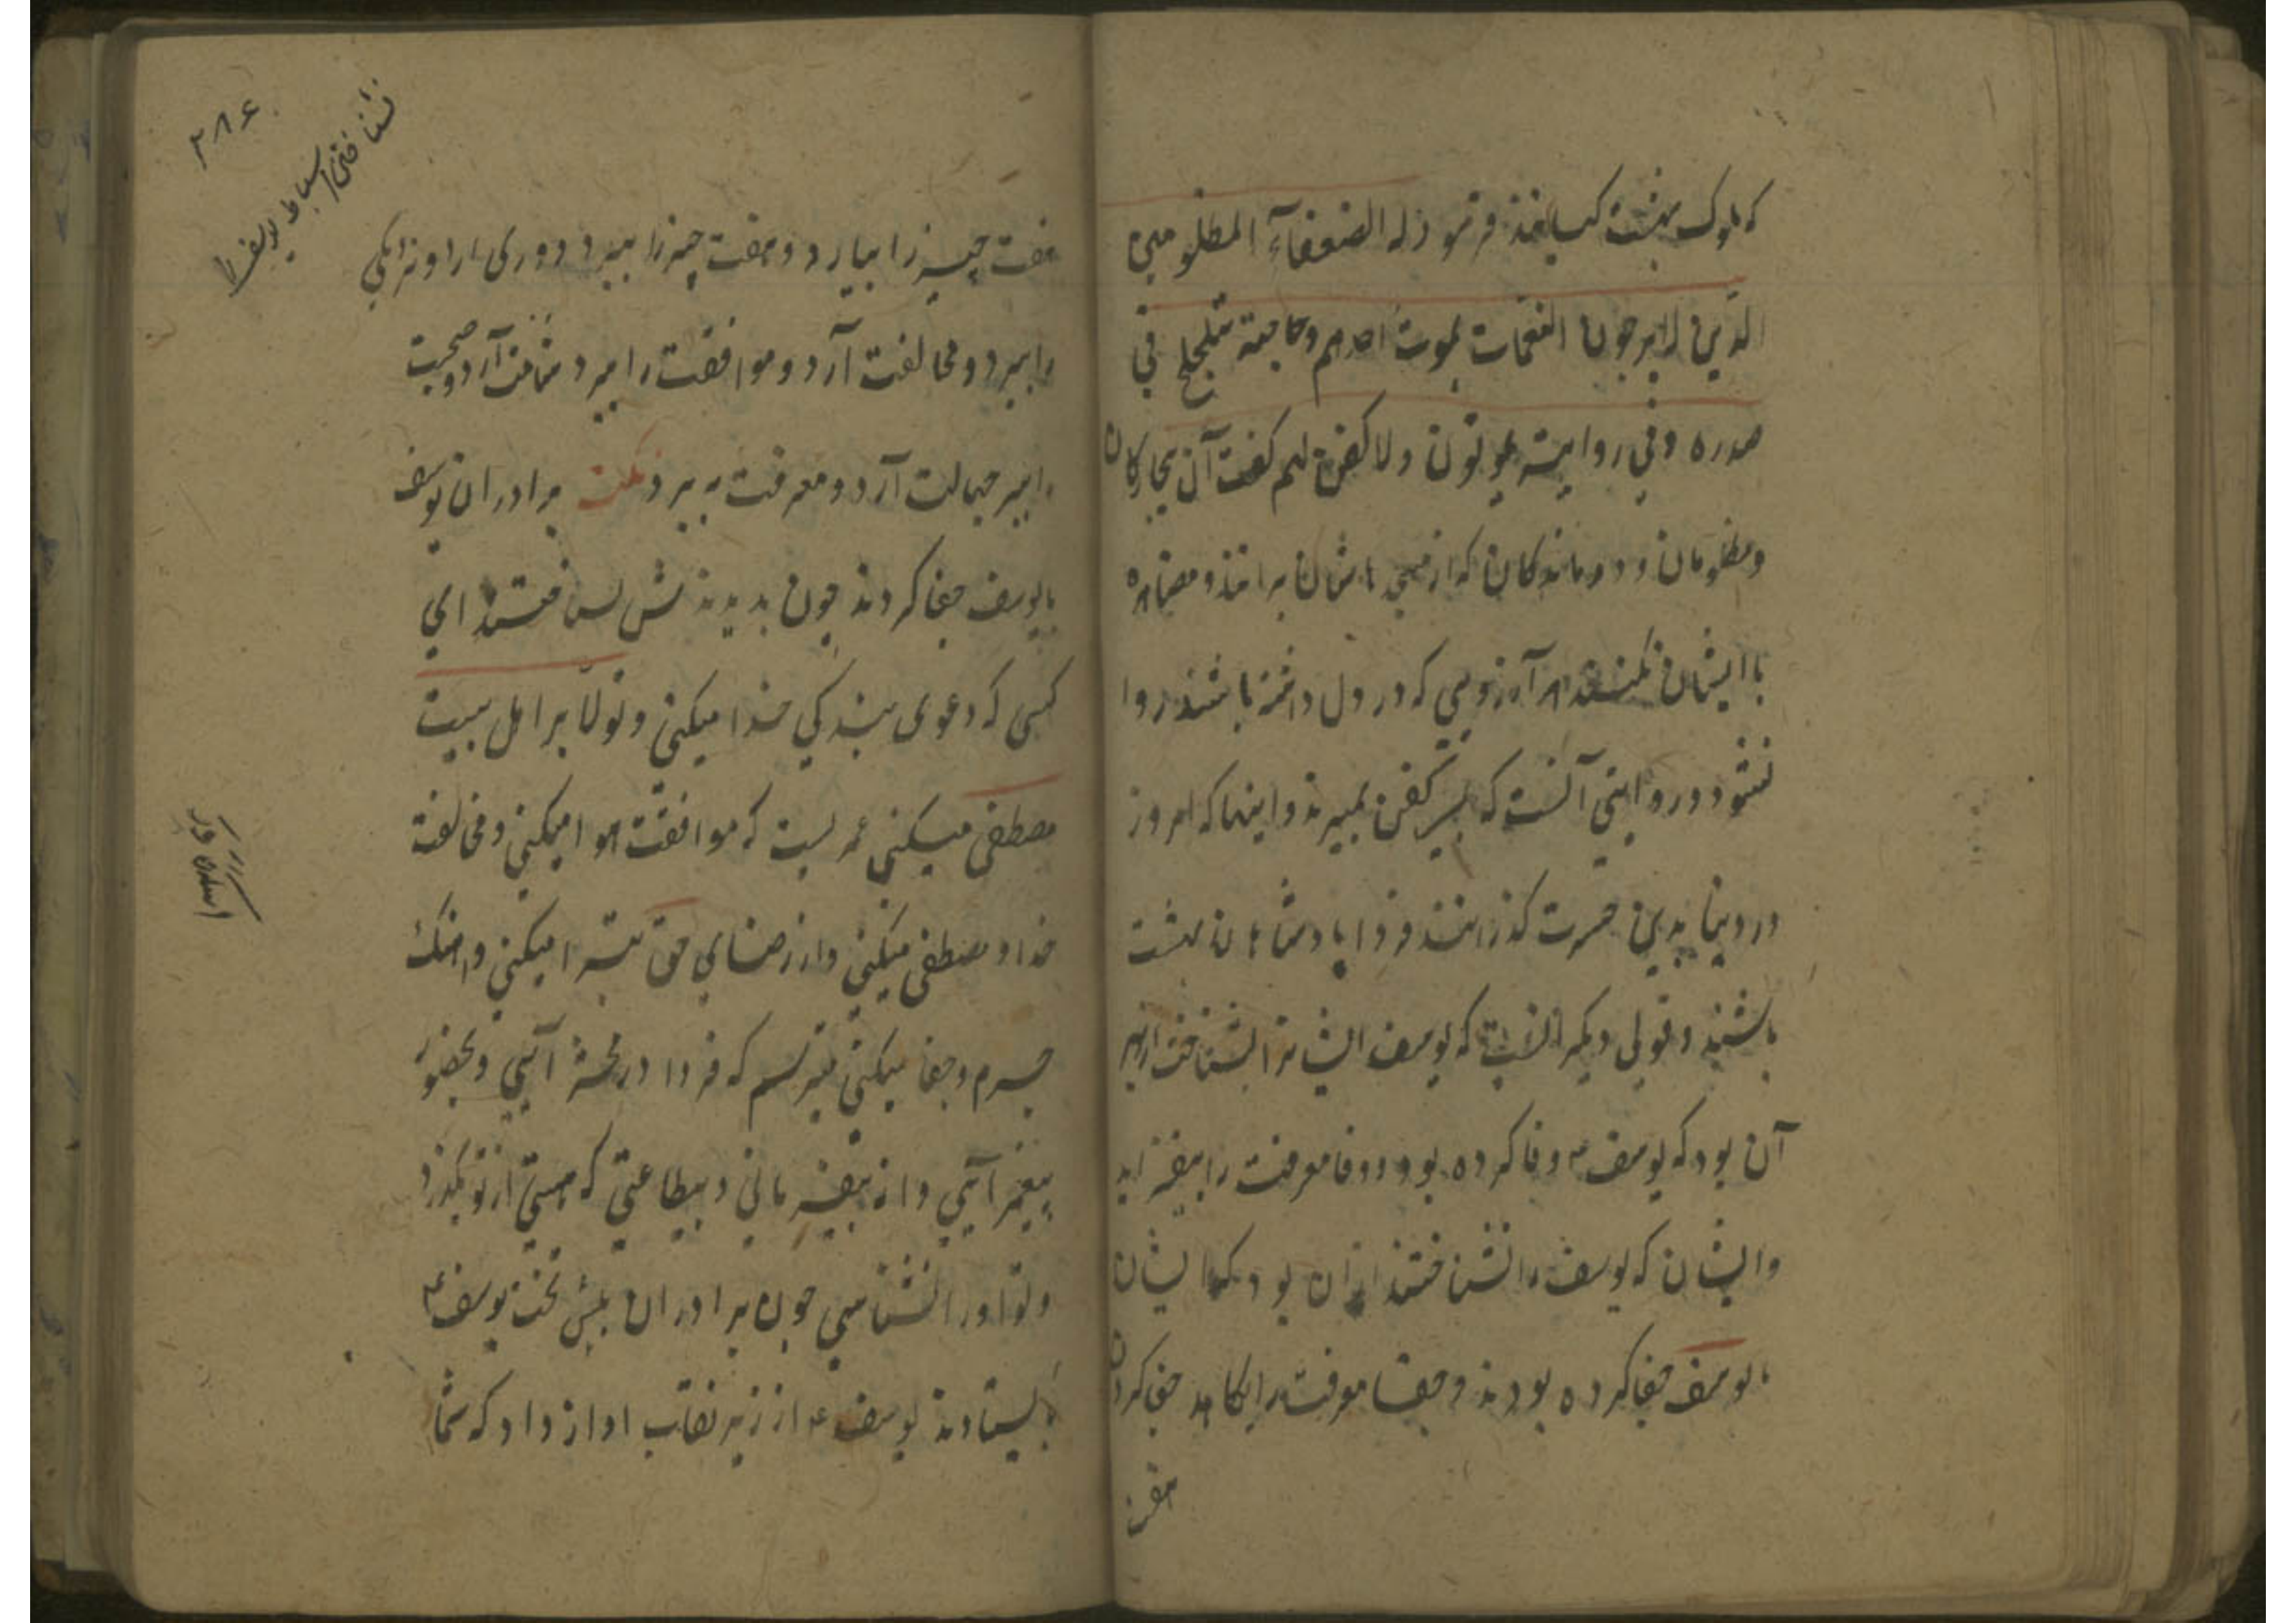 که ملوک بهشت کیانند فرمود له الضعفآء المظلومین
الذین لا یرجون النعمات یموت احدهم وحاجته یتلجلج فی
صدره وفی روایته یموتون ولا کفن لهم کفت آن بیچارکان
ومظلومان و درماندکان که از مسجد ایشان برانند و مصاهره
با ایشان نکنند هر آرزویی که در دل داشته باشند روا
نشود و در روایتی آنست که بی کفن بمیرند و اینها که امروز
در دینا بدین حسرت کذرانند فردا پادشاهان بهشت
باشند و قولی دیکر آنست که یوسف ایشانرا بشناخت از بهر
آن بود که یوسف وفا کرده بود و وفا معرفت را بیفزاید
وایشان که یوسف را نشناختند از ان بود که ایشان
با یوسف جفا کرده بودند و جفا معرفت را بکاهد جفا کردن
هفت
۳۸۶
نشناختن اسباط یوسف را
هفت چیز را بیارد و هفت چیز را ببرد دوری ارد و نزدیکی
را ببرد و مخالفت آرد و موافقت را ببرد آرد و صحبت
را ببرد جهالت آرد و معرفت به برد نکته برادران یوسف
با یوسف جفا کردند چون بدیدندش نشناختند ای
کسی که دعوی بندکی خدا میکنی و تولّا بر اهل بیت
مصطفی میکنی عمریست که موافقت هوا میکنی و مخالفت
خدا و مصطفی میکنی و از رضای حق تبرا میکنی و اهنک
جرم و جفا میکنی میترسم که فردا در محشر آیی و بحضور
پیغمبر آیی و از پیغمبر مانی و بیطاعتی که هستی از تو بکذرد
و تو او را نشناسی چون برادران پیش تخت یوسف ع
بایستادند یوسف ع از زیر نقاب اواز داد که شما